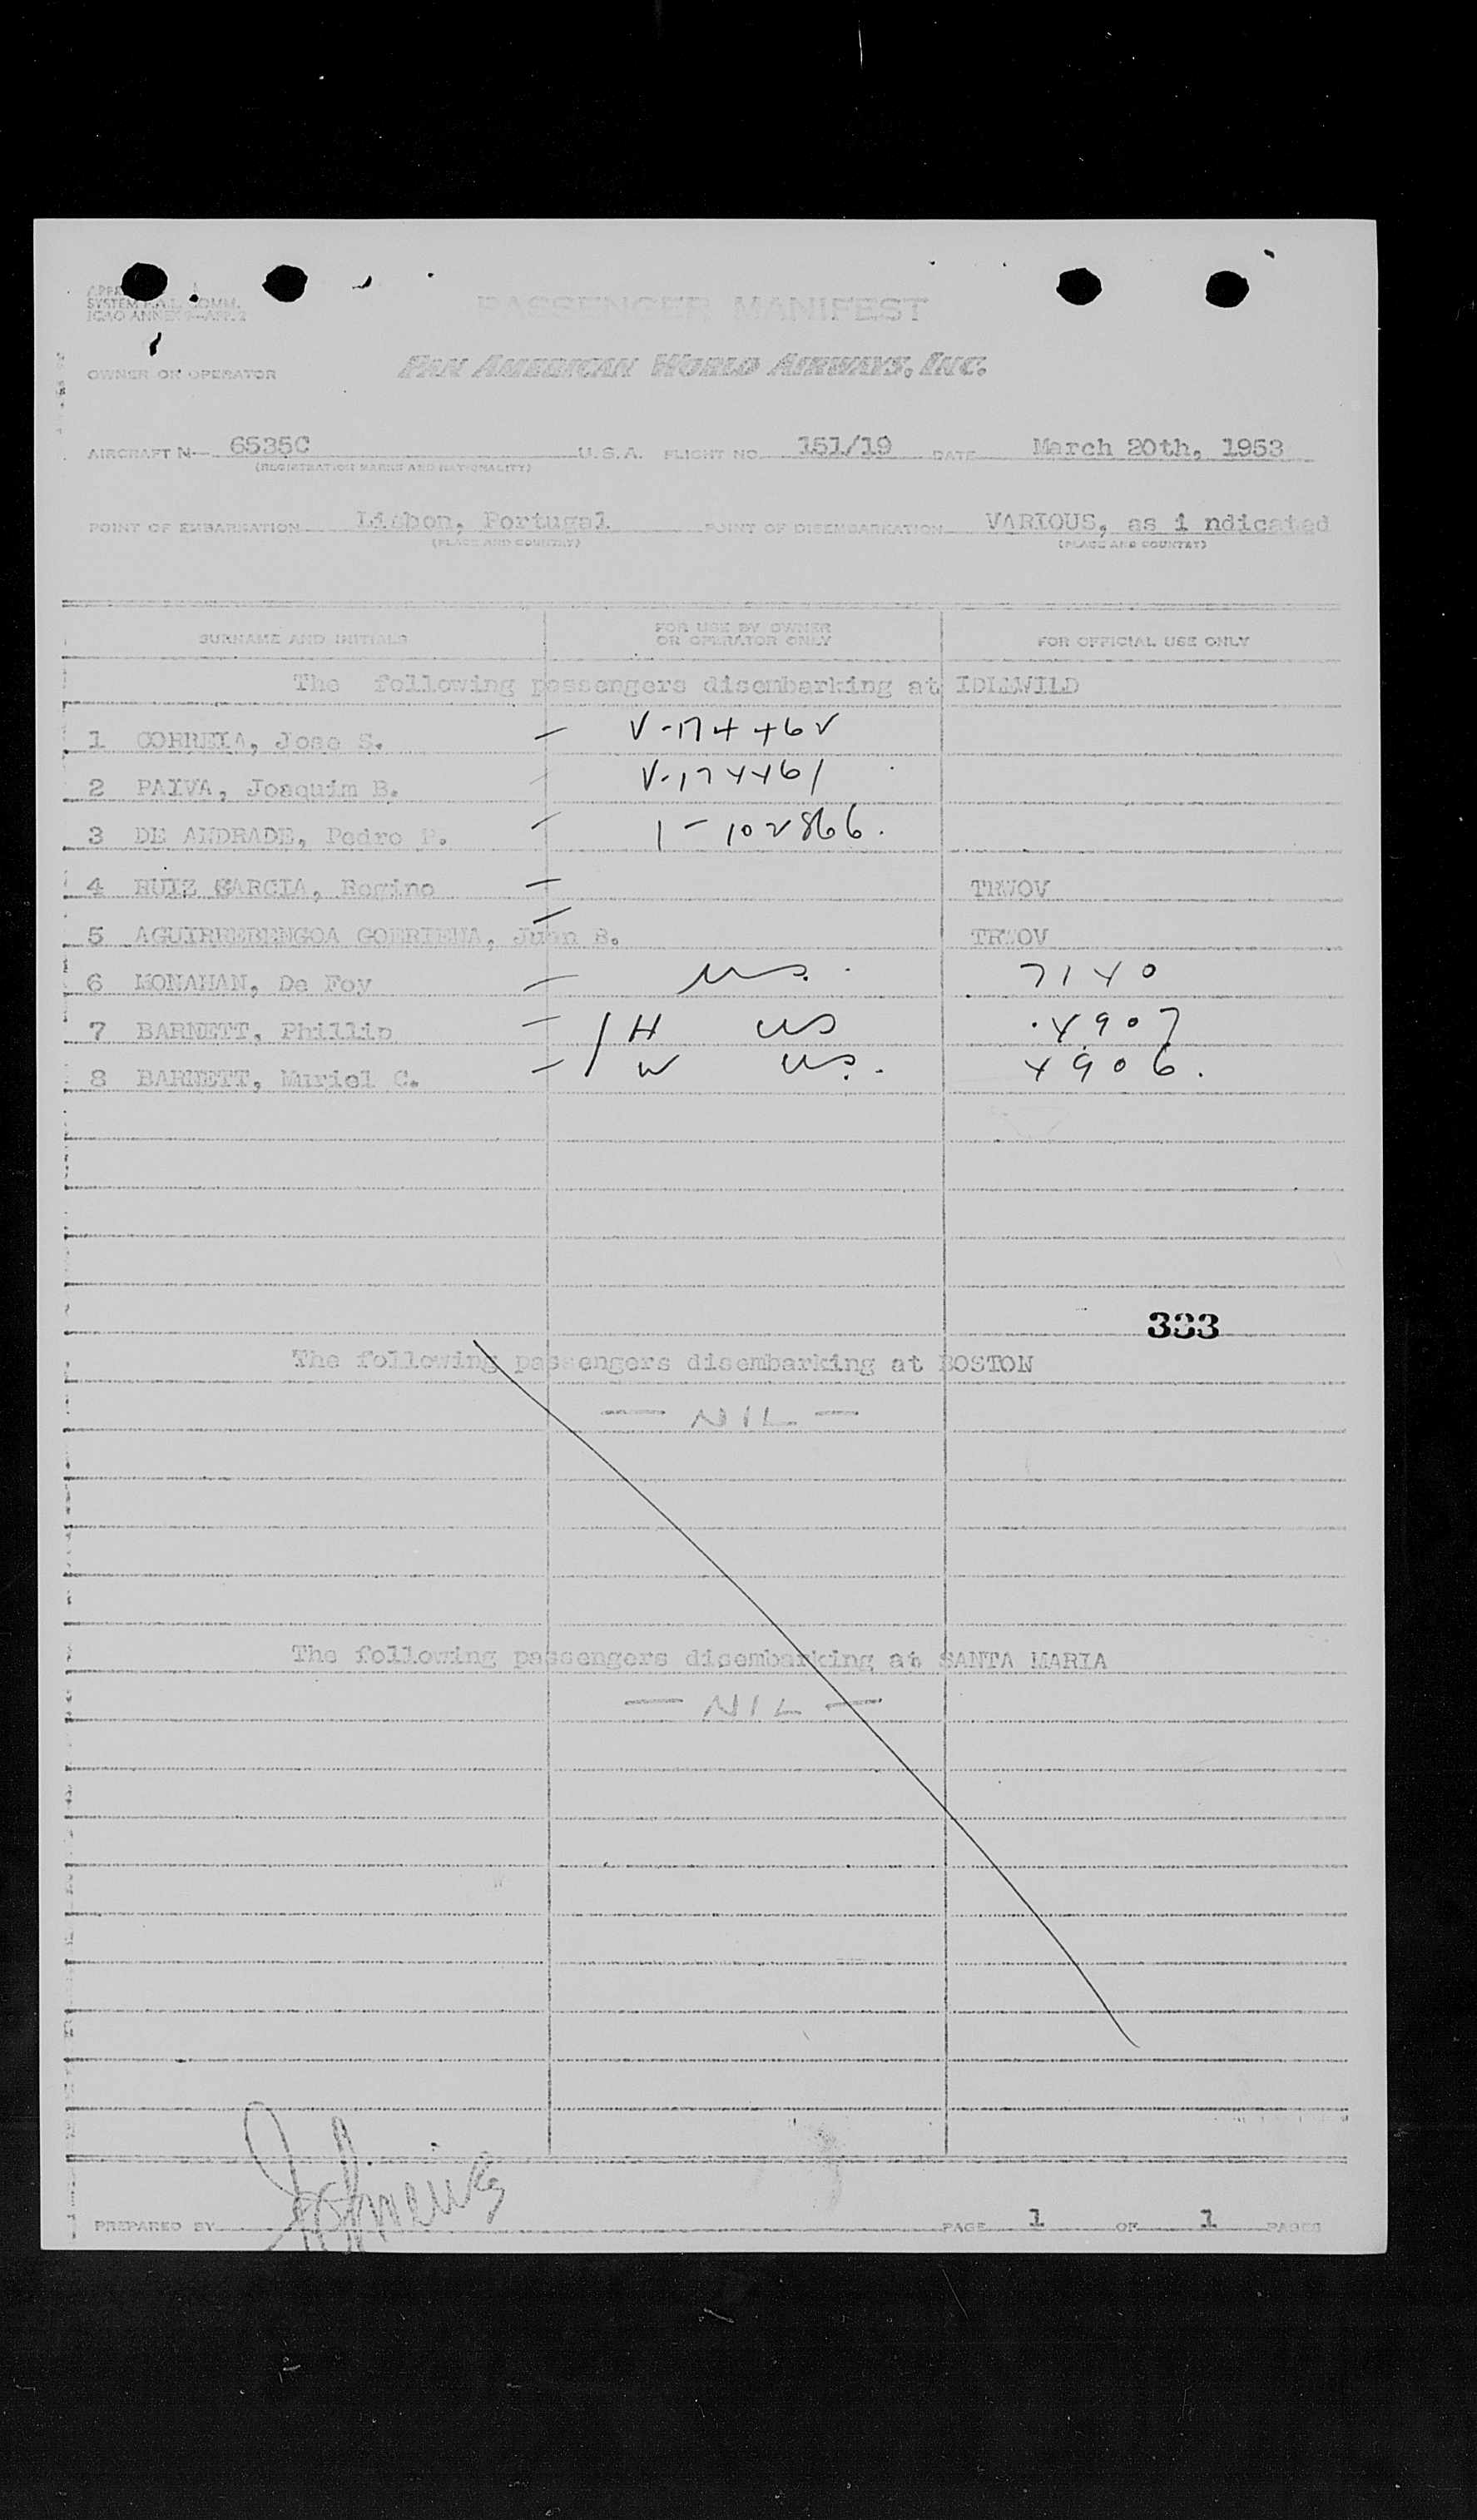 SYSTEM F.A.L. COMM.
PASSENGER MANIFEST
OWNER OR OPERATOR PAN AMERICAN WORLD AIRWAYS, INC.
AIRCRAFT N— 6535C U.S.A. FLIGHT NO. 151/19 DATE March 20th, 1953
(REGISTRATION MARKS AND NATIONALITY)
POINT OF EMBARKATION Lisbon, Portugal POINT OF DISEMBARKATION VARIOUS, as i ndicated
(PLACE AND COUNTRY) (PLACE AND COUNTRY)
SURNAME AND INITIALS FOR USE BY OWNER OR OPERATOR ONLY FOR OFFICIAL USE ONLY
The following passengers disembarking at IDLEWILD
1 CORREIA, Jose S. — V-174462
2 PAIVA, Joaquim B. — V-174461
3 DE ANDRADE, Pedro P. — 1-102866.
4 RUIZ GARCIA, Regino — TRWOV
5 AGUIRREBENGOA GOERIENA, Juan B. — TRWOV
6 MONAHAN, De Foy — US. 7140
7 BARNETT, Phillip — H US 4907
8 BARNETT, Muriel C. — W US. 4906.
333
The following passengers disembarking at BOSTON
— NIL —
The following passengers disembarking at SANTA MARIA
— NIL —
PREPARED BY PAGE 1 OF 1 PAGES